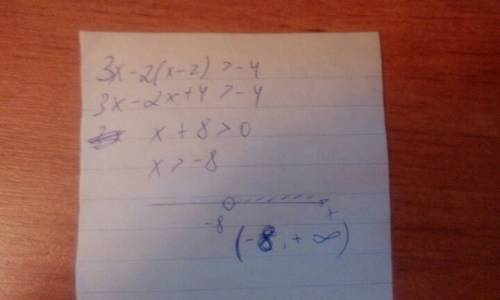 3x-2(x-2)>-4
3x-2x+4>-4
x+8>0
x>-8
-8 x
(-8,+∞)